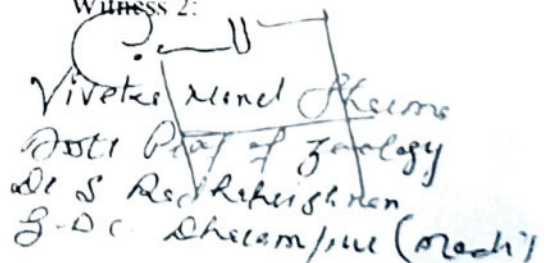 Witness 2:
Vivek Sharma
Asstt Prof of Zoology
Dr S Radhakrishnan
G.DC Dharampur (Mandi)